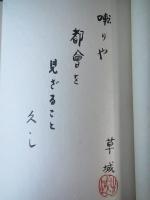 囀りや
都會を
見ざること
久し
草城